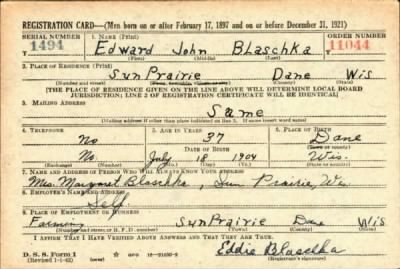 REGISTRATION CARD—(Men born on or after February 17, 1897 and on or before December 31, 1921)
SERIAL NUMBER 1. NAME (Print) ORDER NUMBER
1494 Edward John Blaschka 11044
(First) (Middle) (Last)
2. PLACE OF RESIDENCE (Print)
Sun Prairie Dane Wis
(Number and street) (County) (State)
[THE PLACE OF RESIDENCE GIVEN ON THE LINE ABOVE WILL DETERMINE LOCAL BOARD
JURISDICTION; LINE 2 OF REGISTRATION CERTIFICATE WILL BE IDENTICAL]
3. MAILING ADDRESS
Same
[Mailing address if other than place indicated on line 2. If same insert word same]
4. TELEPHONE 5. AGE IN YEARS 6. PLACE OF BIRTH
No 37 Dane
DATE OF BIRTH
No. July 18 1904 Wis.
(Exchange) (Number) (Mo.) (Day) (Yr.) (State or country)
7. NAME AND ADDRESS OF PERSON WHO WILL ALWAYS KNOW YOUR ADDRESS
Mrs. Margaret Blaschka, Sun Prairie, Wis.
8. EMPLOYER'S NAME AND ADDRESS
Self.
9. PLACE OF EMPLOYMENT OR BUSINESS
Farming Sun Prairie Dane Wis
(Number and street or R. F. D. number) (Town) (County) (State)
I AFFIRM THAT I HAVE VERIFIED ABOVE ANSWERS AND THAT THEY ARE TRUE.
D. S. S. Form 1 Eddie Blaschka
(Revised 1-1-42) (over)